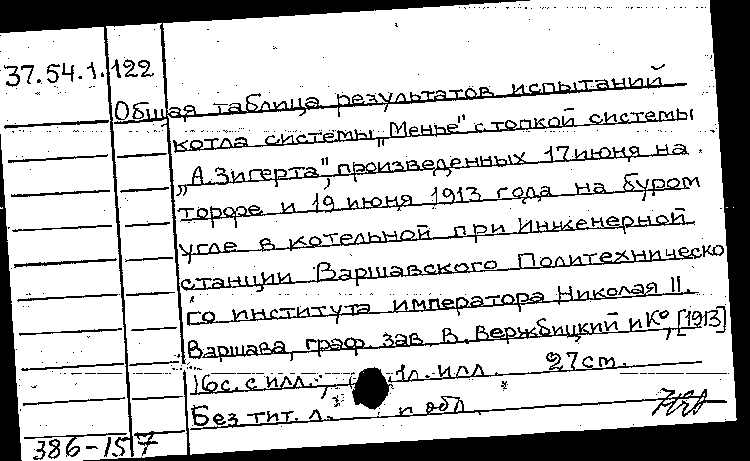 37.54.1.122
Общая таблица результатов испытаний
котла системы „Менье" с топкой системы
„А. Зигерта", произведенных 17 июня на
торфе и 19 июня 1913 года на буром
угле в котельной при Инженерной
станции Варшавского Политехническо
го института императора Николая II.
Варшава, граф. зав. В. Вержбицкий и К°, [1913]
16с. с илл.; 1л. илл. 27 cm.
Без тит. л. п обл.
386-157